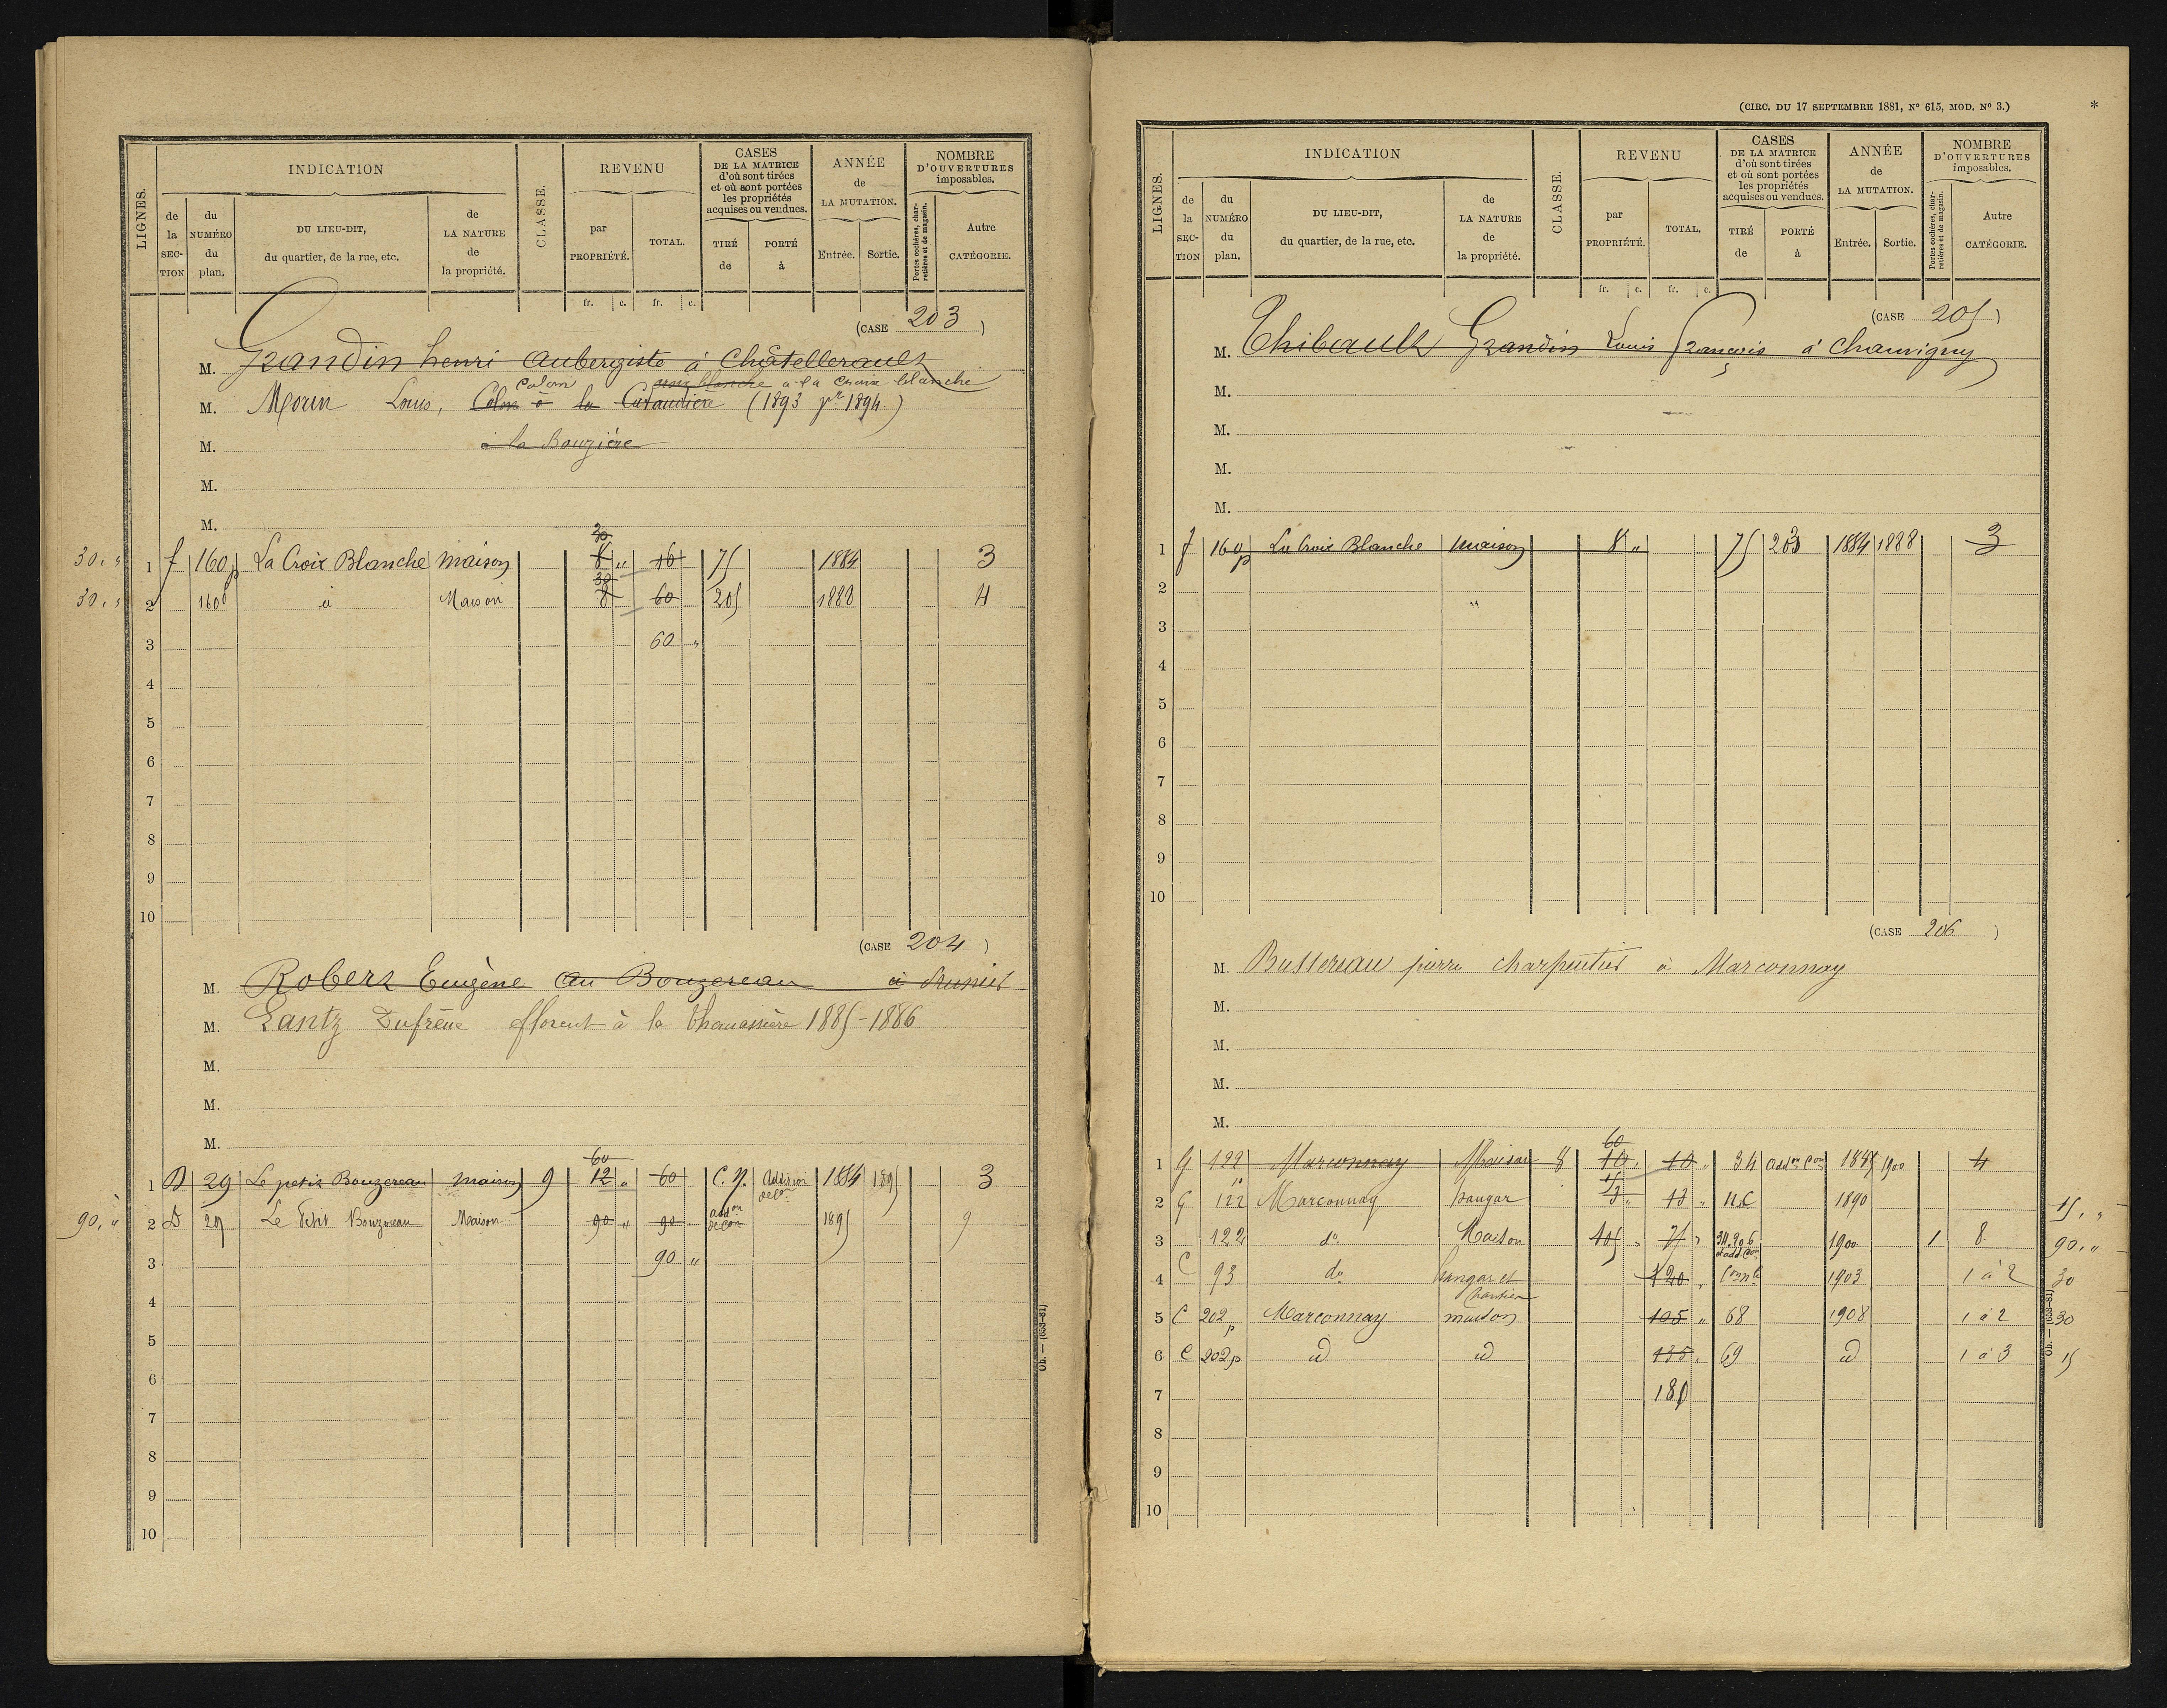 LIGNES.
INDICATION
de la SECTION
du NUMÉRO du plan.
DU LIEU-DIT, du quartier, de la rue, etc.
de LA NATURE de la propriété.
CLASSE.
REVENU
par PROPRIÉTÉ.
TOTAL.
CASES DE LA MATRICE d'où sont tirées et où sont portées les propriétés acquises ou vendues.
TIRÉ de
PORTÉ à
ANNÉE de LA MUTATION.
Entrée.
Sortie.
NOMBRE D'OUVERTURES imposables.
Portes cochères, charretières et de magasin.
Autre CATÉGORIE.
fr. c. fr. c.
(CASE 203)
M. Grandin henri aubergiste à Châtellerault
colon croix blanche à la Croix blanche
M. Morin Louis, Colon à la (1893 pr 1894.)
M. à la Bouzière
M.
M.
30 "
30, " 1 f 160p La Croix Blanche maison 8 " 16 75 1884 3
30
30, " 2 160p id Maison 8 60 205 1888 4
3 60 "
4
5
6
7
8
9
10
(CASE 204)
M. Robert Eugène au Bouzereau à
M. Lantz Dufrène florent à la 1885-1886
M.
M.
M.
60
1 D 29 Le petit Bouzereau maison 9 12 " 60 C. N. Addition de con 1884 1895 3
90, " 2 D 29 Le Petit Bouzereau Maison 90 " 90 addon de con 1895 9
3 90 "
4
5
6
7
8
9
10
Ob. — (653-81)
(CIRC. DU 17 SEPTEMBRE 1881, N° 615, MOD. N° 3.) *
LIGNES.
INDICATION
de la SECTION
du NUMÉRO du plan.
DU LIEU-DIT, du quartier, de la rue, etc.
de LA NATURE de la propriété.
CLASSE.
REVENU
par PROPRIÉTÉ.
TOTAL.
CASES DE LA MATRICE d'où sont tirées et où sont portées les propriétés acquises ou vendues.
TIRÉ de
PORTÉ à
ANNÉE de LA MUTATION.
Entrée.
Sortie.
NOMBRE D'OUVERTURES imposables.
Portes cochères, charretières et de magasin.
Autre CATÉGORIE.
fr. c. fr. c.
(CASE 205)
M. Thibault Grandin Louis François à Chauvigny
M.
M.
M.
M.
1 f 160p La Croix Blanche maison 8 " 75 203 1884 1888 3
2 "
3
4
5
6
7
8
9
10
(CASE 206)
M. Bussereau pierre charpentier à Marconnay
M.
M.
M.
M.
60
1 G 122 Marconnay Maison 8 10 " 10 " 34 addon Con 1885 1900 4
15
2 G 122 Marconnay hangar 3 " 13 " N.C 1890 15, "
3 122 do Maison 105 " 75 " 34.206 et add. Con 1900 1 8 90, "
4 C 93 do hangar et chantier 120 " 1903 1 à 2 30
5 C 202p Marconnay maison 105 " 68 1908 1 à 2 30
6 C 202p id id 135 " 69 id 1 à 3 15
7 180
8
9
10
Ob. — (653-81)